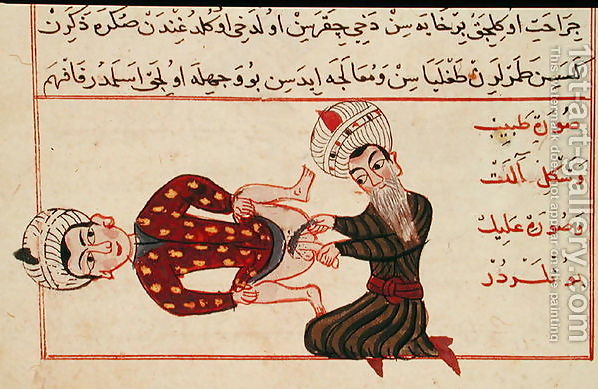 جراحت اوكلجق برخايه سن دخي چقرهسن اولدخي اوكلدغندن صكره ذكرن
كسسن طمرلرن طغلياسن ومعالجه ايدهسن بو وجهله اولجق اسلمدر فافهم
صورة طبيب
وشكل آلت
وصورة عليل
بونلردر
1st-art-gallery.com
This watermark does not appear on the painting